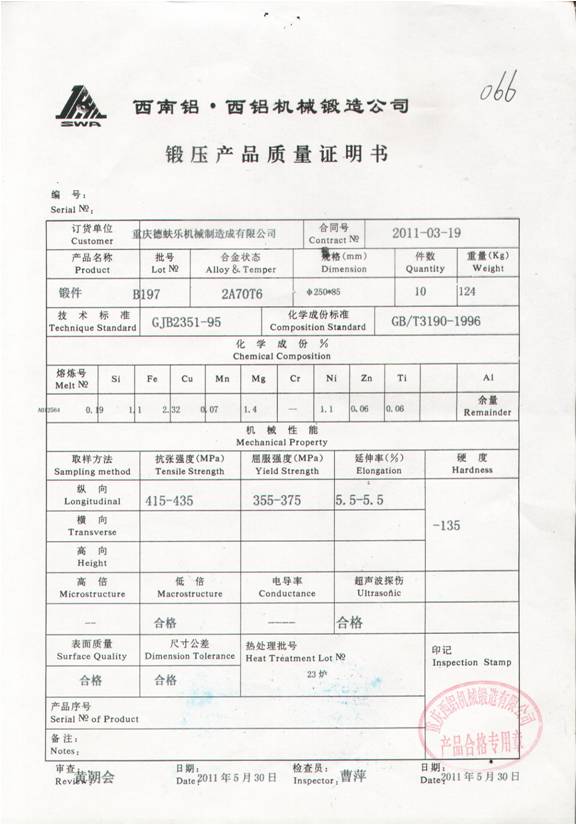 066
SWA
西南铝·西铝机械锻造公司
锻压产品质量证明书
编 号:
Serial №:
订货单位 重庆德蚨乐机械制造成有限公司 合同号 2011-03-19
Customer Contract №
产品名称 批号 合金状态 规格(mm) 件数 重量(Kg)
Product Lot № Alloy & Temper Dimension Quantity Weight
锻件 B197 2A70T6 φ250*85 10 124
技 术 标 准 GJB2351-95 化学成份标准 GB/T3190-1996
Technique Standard Composition Standard
化 学 成 份 %
Chemical Composition
熔炼号 Si Fe Cu Mn Mg Cr Ni Zn Ti Al
Melt №
0.19 1.1 2.32 0.07 1.4 — 1.1 0.06 0.06 余量
Remainder
机 械 性 能
Mechanical Property
取样方法 抗张强度(MPa) 屈服强度(MPa) 延伸率(%) 硬 度
Sampling method Tensile Strength Yield Strength Elongation Hardness
纵 向 415-435 355-375 5.5-5.5 -135
Longitudinal
横 向
Transverse
高 向
Height
高 倍 低 倍 电导率 超声波探伤
Microstructure Macrostructure Conductance Ultrasonic
-- 合格 ---- 合格
表面质量 尺寸公差 热处理批号 印记
Surface Quality Dimension Tolerance Heat Treatment Lot № Inspection Stamp
合格 合格 23炉
产品序号
Serial № of Product
重庆西铝机械锻造有限公司
产品合格专用章
备注:
Notes:
审查: 黄朝会 日期: 2011年5月30日 检查员: 曹萍 日期: 2011年5月30日
Review: Date: Inspector: Date: